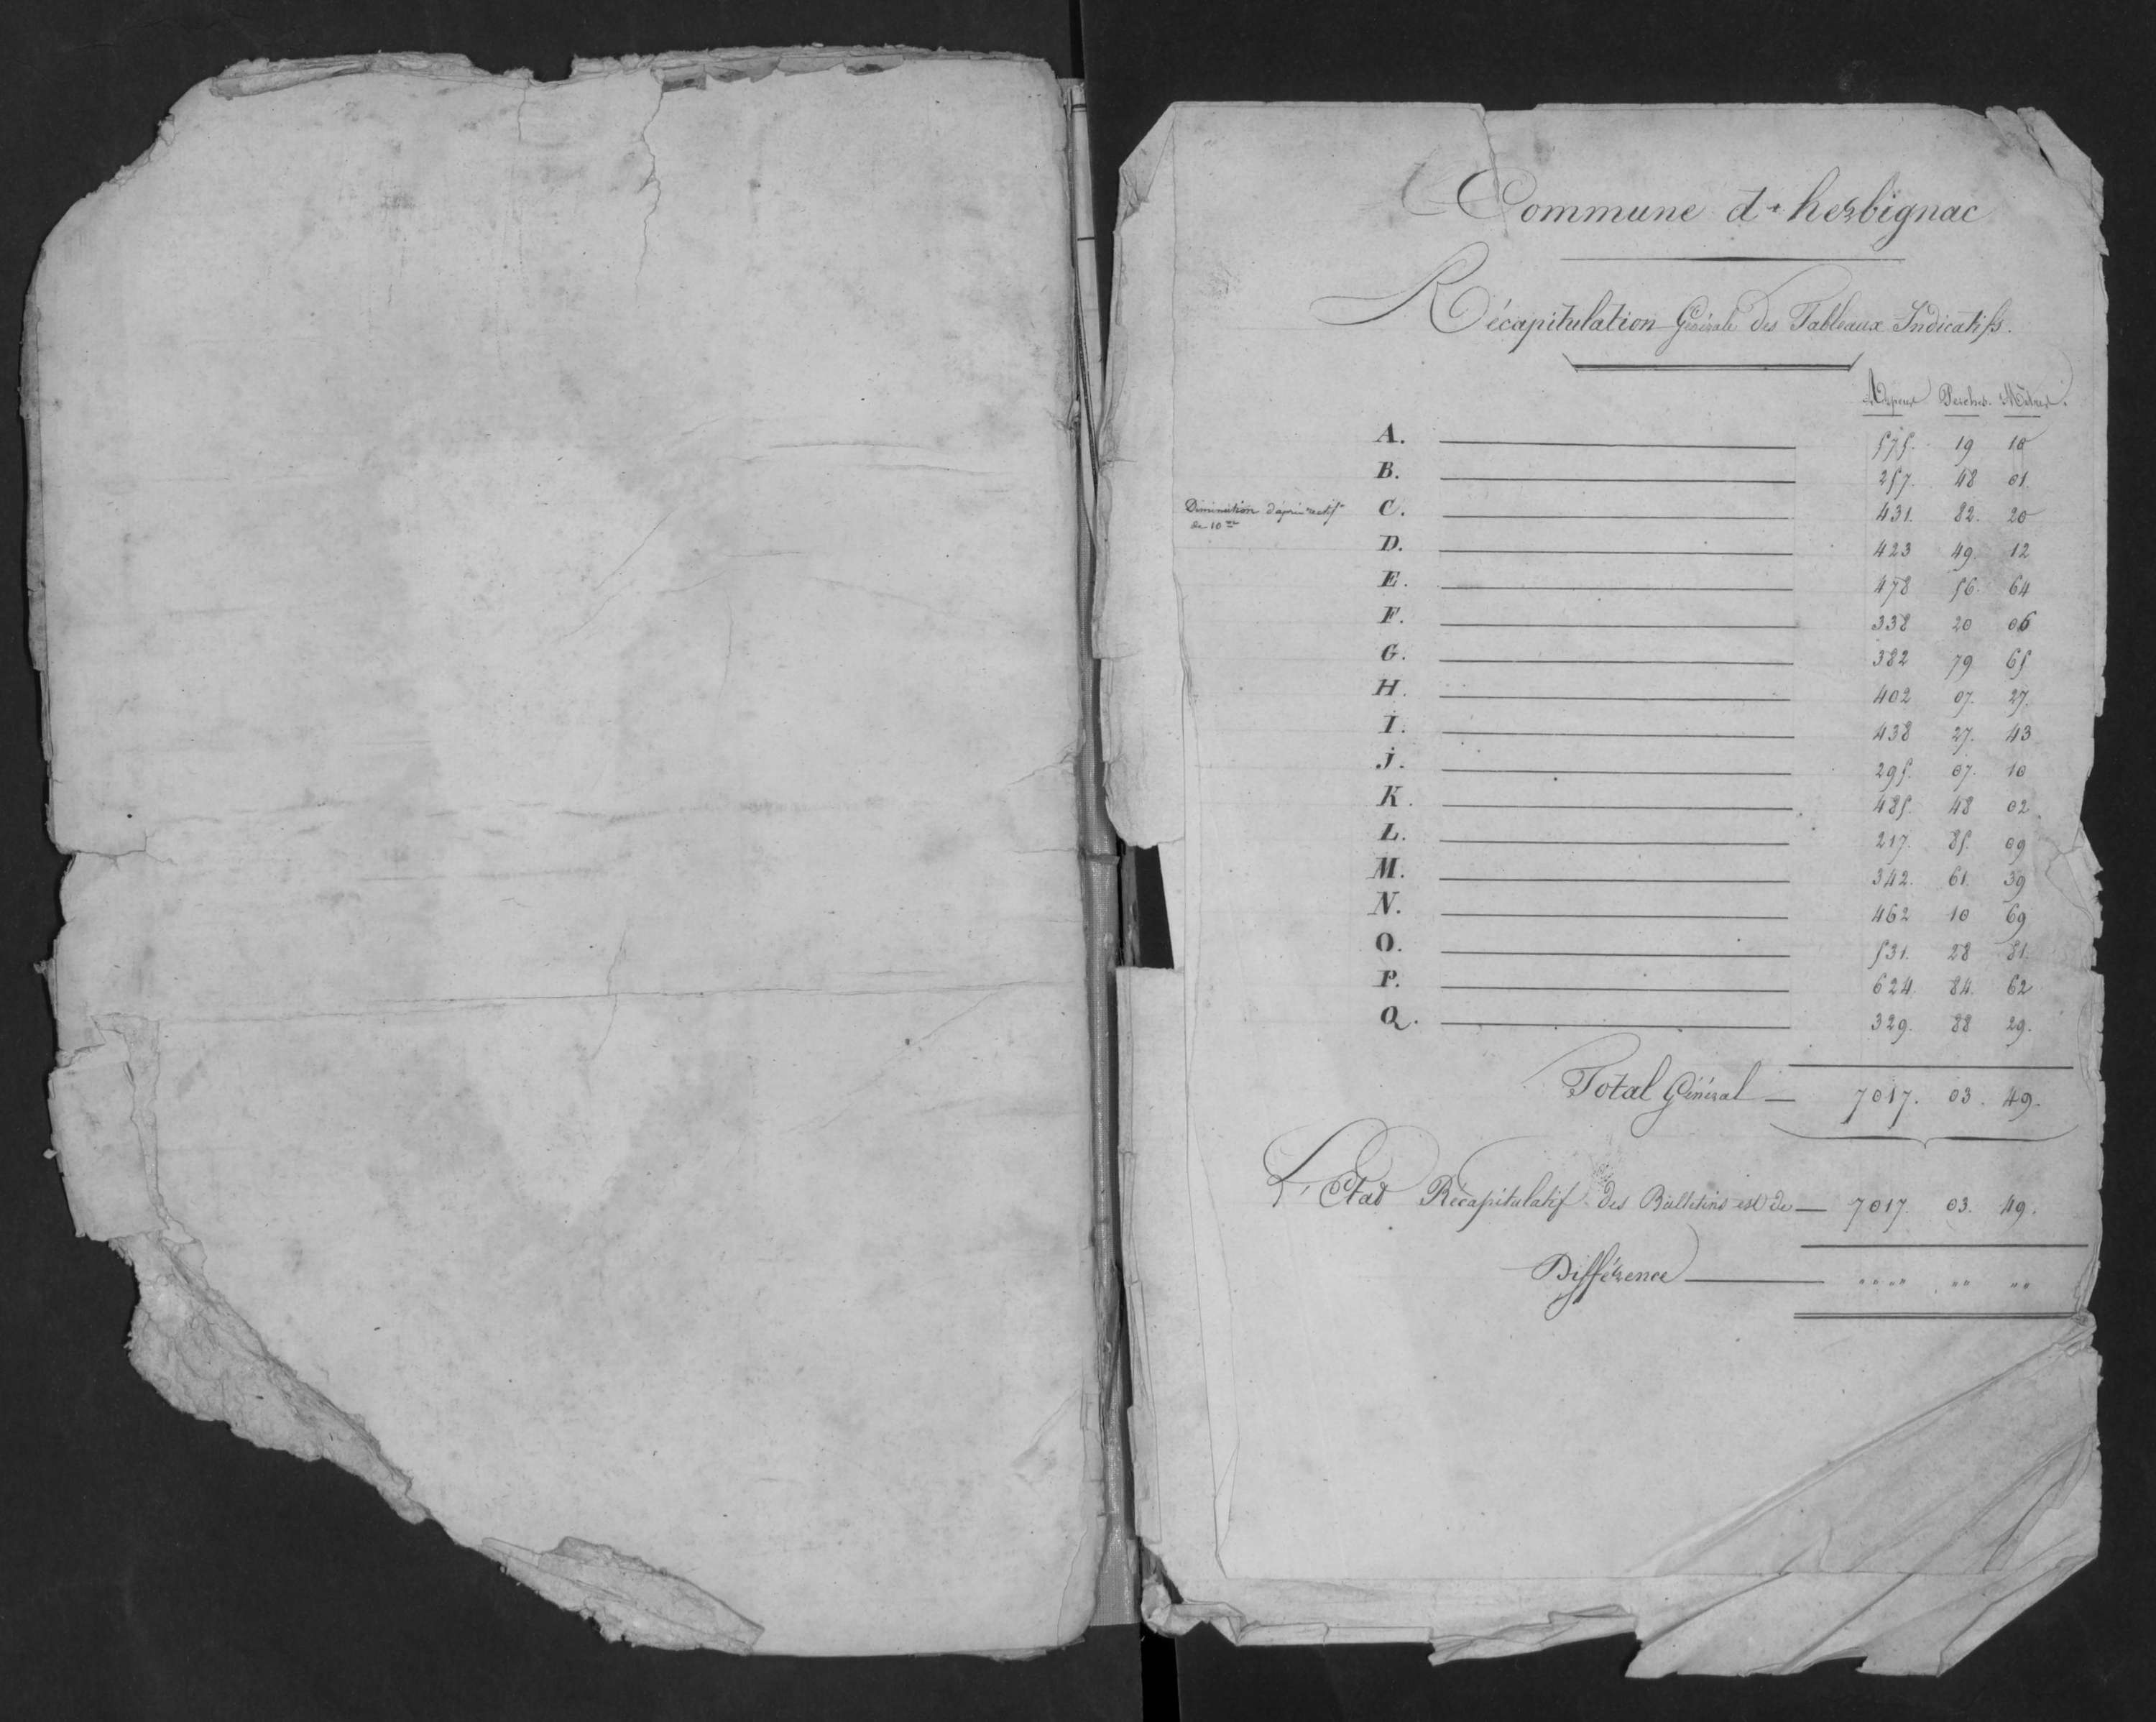 Commune d'herbignac
Récapitulation Générale des Tableaux Indicatifs.
Arpens Perches. Mètres.
A. 575. 19 10
B. 257. 48 01.
Diminution d'après rectif.on C. 431. 82. 20
de 10 me
D. 423 49. 12
E. 478 56. 64
F. 338 20 06
G. 382 79 65
H. 402 07. 27.
I. 438 27. 43
J. 295. 07. 10
K. 485. 48 02
L. 217. 85. 09
M. 342. 61. 39
N. 462 10 69
O. 531. 28 81.
P. 624. 84. 62
Q. 329. 88 29.
Total Général — 7017. 03. 49.
L'Etat Récapitulatif des Bulletins est de — 7017. 03. 49.
Différence — " " " " " " " "